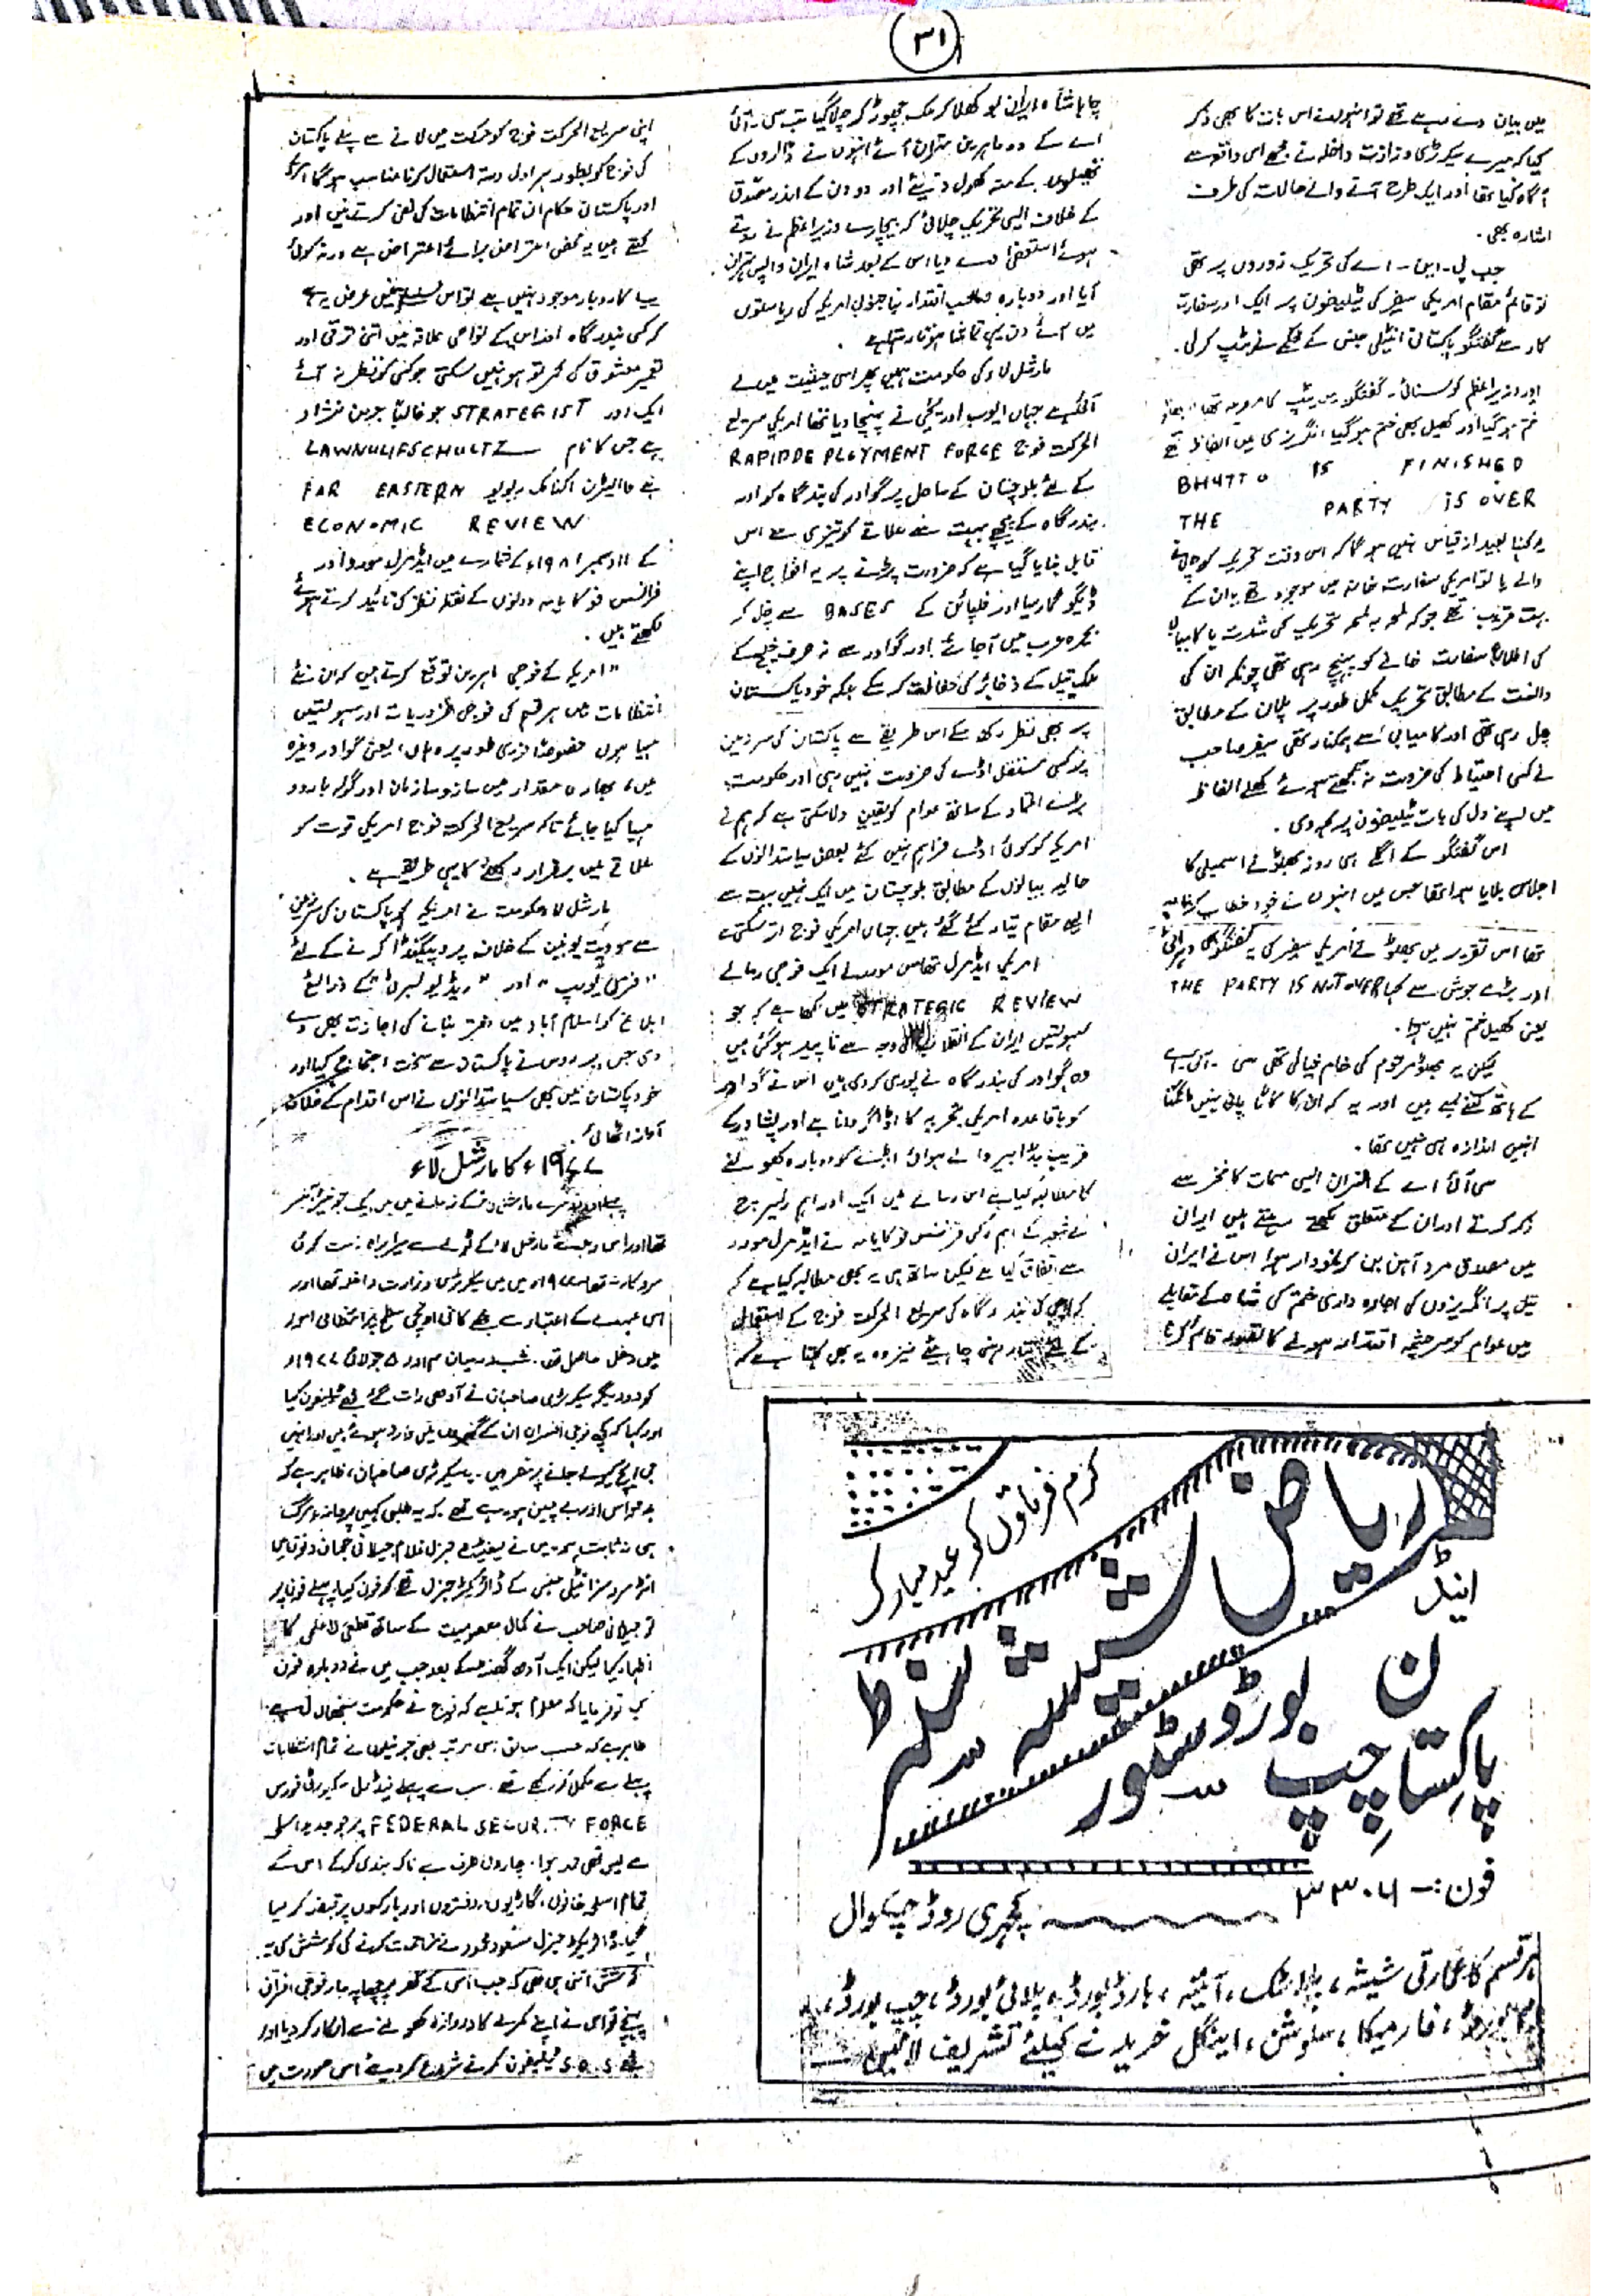 ۳۱
میں بیان دے رہے تھے تو انہوں نے اس بات کا بھی ذکر
کیا کہ میرے سیکرٹری وزارت داخلہ نے مجھے اس واقعہ سے
آگاہ کیا تھا اور ایک طرح آنے والے حالات کی طرف
اشارہ بھی۔
جب پی۔این۔اے کی تحریک زوروں پر تھی
تو قائم مقام امریکی سفیر کی ٹیلیفون پر ایک اور سفارت
کار سے گفتگو پاکستانی انٹیلی جنس کے محکمے نے ٹیپ کرلی۔
اور وزیراعظم کو سنائی۔ گفتگو میں ٹیپ کا مصرعہ تھا "بھٹو
ختم ہو گیا اور کھیل بھی ختم ہو گیا" انگریزی میں الفاظ تھے
BHUTTO IS FINISHED
THE PARTY IS OVER
یہ کہنا بعید از قیاس نہیں ہو گا کہ اس وقت تحریک کو چلانے
والے یا تو امریکی سفارت خانہ میں موجود تھے یا ان کے
بہت قریب تھے جو کہ لمحہ بہ لمحہ تحریک کی شدت یا کامیابی
کی اطلاع سفارت خانے کو پہنچ رہی تھی چونکہ ان کی
دانست کے مطابق تحریک مکمل طور پر پلان کے مطابق
چل رہی تھی اور کامیابی سے ہمکنار تھی سفیر صاحب
نے کسی احتیاط کی ضرورت نہ سمجھتے ہوئے کھلے الفاظ
میں اپنے دل کی بات ٹیلیفون پر کہہ دی۔
اس گفتگو کے اگلے ہی روز بھٹو نے اسمبلی کا
اجلاس بلایا ہوا تھا جس میں انہوں نے خود خطاب کرنا
تھا اس تقریر میں بھٹو نے امریکی سفیر کی یہ گفتگو بھی دہرائی
اور بڑے جوش سے کہا THE PARTY IS NOT OVER
یعنی کھیل ختم نہیں ہوا۔
لیکن یہ بھٹو مرحوم کی خام خیالی تھی سی۔آئی۔اے
کے ہاتھ کتنے لمبے ہیں اور یہ کہ ان کا کاٹا پانی نہیں مانگتا
انہیں اندازہ ہی نہیں تھا۔
سی آئی اے کے افسران ایسی مہمات کا فخر سے
ذکر کرتے اور ان کے متعلق لکھتے رہتے ہیں ایران
میں مصدق مرد آہن بن کر نمودار ہوا اس نے ایران
تیل پر انگریزوں کی اجارہ داری ختم کی شاہ کے مقابلے
میں عوام کو سرچشمہ اقتدار ہونے کا تصور قائم کرنا
چاہا شاہ ایران بوکھلا کر ملک چھوڑ کر چلا گیا تب سی۔آئی
اے کے دو ماہرین تہران آئے انہوں نے ڈالروں کے
تھیلوں کے منہ کھول دیئے اور دو دن کے اندر مصدق
کے خلاف ایسی تحریک چلائی کہ بیچارے وزیراعظم نے روتے
ہوئے استعفیٰ دے دیا اس کے بعد شاہ ایران واپس تہران
آیا اور دوبارہ صاحب اقتدار بنا جنوبی امریکہ کی ریاستوں
میں آئے دن یہی تماشا ہوتا رہتا ہے۔
مارشل لاء کی حکومت ہمیں پھر اسی حیثیت میں لے
آئی ہے جہاں ایوب اور یحییٰ نے پہنچا دیا تھا امریکی سریع
الحرکت فوج RAPIDDE PLOYMENT FORCE
کے لئے بلوچستان کے ساحل پر گوادر کی بندرگاہ کو اور
بندرگاہ کے پیچھے بہت سے علاقے کو تیزی سے اس
قابل بنایا گیا ہے کہ ضرورت پڑنے پر یہ افواج اپنے
ڈیگو گارسیا اور فلپائن کے BASES سے چل کر
بحرہ عرب میں آ جائے اور گوادر سے نہ صرف خلیج کے
تیل کے ذخائر کی حفاظت کر سکے بلکہ خود پاکستان
پر بھی نظر رکھ سکے اس طریقے سے پاکستان کی سرزمین
پر کسی مستقل اڈے کی ضرورت نہیں رہی اور حکومت
بڑے اعتماد کے ساتھ عوام کو یقین دلا سکتی ہے کہ ہم نے
امریکہ کو کوئی اڈے فراہم نہیں کئے بعض سیاستدانوں کے
حالیہ بیانوں کے مطابق بلوچستان میں ایک نہیں بہت سے
ایسے مقام تیار کئے گئے ہیں جہاں امریکی فوج اتر سکتی ہے
امریکی ایڈمرل تھامس مورر نے ایک فوجی رسالے
STRATEGIC REVIEW میں لکھا ہے کہ جو
سہولتیں ایران کے انقلاب کی وجہ سے ناپید ہو گئی ہیں
وہ گوادر کی بندرگاہ نے پوری کر دی ہیں اس نے گوادر
کو باقاعدہ امریکی بحریہ کا اڈا گردانا ہے اور پشاور کے
قریب بڈابیر والے ہوائی اڈے کو دوبارہ کھولنے
کا مطالبہ کیا ہے اس رسالے میں ایک اور اہم ریسرچ
کے شعبہ کے اہم رکن فرانسس فوکایامہ نے ایڈمرل مورر
سے اتفاق کیا ہے لیکن ساتھ ہی یہ بھی مطالبہ کیا ہے کہ
کراچی کی بندرگاہ کی سریع الحرکت فوج کے استعمال
کے لئے تیار رہنی چاہیئے نیز وہ یہ بھی کہتا ہے کہ
اپنی سریع الحرکت فوج کو حرکت میں لانے سے پہلے پاکستان
کی فوج کو بطور ہراول دستہ استعمال کرنا مناسب ہو گا امریکی
اور پاکستان حکام ان تمام انتظامات کی نفی کرتے ہیں اور
کہتے ہیں یہ محض اعتراض برائے اعتراض ہے ورنہ کوئی
ایسا کاروبار موجود نہیں ہے تو اس سلسلہ میں عرض یہ ہے
کہ کسی بندرگاہ اور اس کے نواحی علاقہ میں اتنی ترقی اور
تعمیر معشوق کی کمر تو ہو نہیں سکتی جو کسی کو نظر نہ آئے
ایک اور STRATEGIST جو غالباً جرمن نژاد
ہے جس کا نام LAWNULIFSCHULTZ
ہے فار ایسٹرن اکنامک ریویو FAR EASTERN
ECONOMIC REVIEW
کے ۱۱ دسمبر ۱۹۸۱ء کے شمارے میں ایڈمرل مورر اور
فرانسس فوکایامہ دونوں کے نقطہ نظر کی تائید کرتے ہوئے
لکھتے ہیں۔
"امریکہ کے فوجی ماہرین توقع کرتے ہیں کہ ان نئے
انتظامات میں ہر قسم کی فوجی ضروریات اور سہولتیں
مہیا ہوں خصوصاً فوری طور پر وہاں، یعنی گوادر وغیرہ
میں، بھاری مقدار میں ساز و سامان اور گولہ بارود
مہیا کیا جائے تاکہ سریع الحرکت فوج امریکی قوت کو
علاقے میں برقرار رکھنے کا یہی طریقہ ہے۔
مارشل لاء حکومت نے امریکہ کو پاکستان کی سرزمین
سے سوویت یونین کے خلاف پروپیگنڈا کرنے کے لئے
"فری یورپ" اور "ریڈیو لبرٹی" کے ذرائع
ابلاغ کو اسلام آباد میں دفتر بنانے کی اجازت بھی دے
دی جس پر روس نے پاکستان سے سخت احتجاج کیا اور
خود پاکستان میں بھی سیاستدانوں نے اس اقدام کے خلاف
آواز اٹھائی۔
۱۹۷۷ء کا مارشل لاء
پہلے اور دوسرے مارشل لاء کے زمانے میں میں ایک جونیئر آفیسر
تھا اور اس وجہ سے مارشل لاء کے ٹولے سے میرا براہ راست کوئی
سروکار نہ تھا ۱۹۷۷ء میں میں سیکرٹری وزارت داخلہ تھا اور
اس عہدے کے اعتبار سے مجھے کافی اونچی سطح پر انتظامی امور
میں دخل حاصل تھا۔ شب درمیان ۴ اور ۵ جولائی ۱۹۷۷ء
کو دو دیگر سیکرٹری صاحبان نے آدھی رات گئے مجھے ٹیلیفون کیا
اور کہا کہ کچھ فوجی افسران ان کے گھروں میں وارد ہوئے ہیں اور انہیں
جی ایچ کیو لے جانے پر مصر ہیں۔ یہ سیکرٹری صاحبان، ظاہر ہے کہ
بدحواس اور بے چین ہو رہے تھے کہ یہ طلبی کہیں پروانہ مرگ
ہی نہ ثابت ہو۔ میں نے لیفٹیننٹ جنرل غلام جیلانی جو ان دنوں میں
انٹر سروسز انٹیلی جنس کے ڈائریکٹر جنرل تھے کو فون کیا۔ پہلے فون پر
تو جیلانی صاحب نے کمال معصومیت کے ساتھ قطعی لاعلمی کا
اظہار کیا لیکن ایک آدھ گھنٹہ کے بعد جب میں نے دوبارہ فون
کیا تو فرمایا کہ معلوم ہوتا ہے کہ فوج نے حکومت سنبھال لی ہے
ظاہر ہے کہ حسب سابق اس مرتبہ بھی جرنیلوں نے تمام انتظامات
پہلے سے مکمل کر رکھے تھے۔ سب سے پہلے فیڈرل سیکورٹی فورس
FEDERAL SECURITY FORCE پر جو جدید اسلحہ
سے لیس تھی حملہ ہوا۔ چاروں طرف سے ناکہ بندی کر کے اس کے
تمام اسلحہ خانوں، گاڑیوں، دفتروں اور بارکوں پر قبضہ کر لیا
گیا۔ ڈائریکٹر جنرل مسعود محمود نے مزاحمت کرنے کی کوشش کی۔ یہ
کوشش اتنی ہی تھی کہ جب اس کے گھر پر چھاپہ مار فوجی افسران
پہنچے تو اس نے اپنے کمرے کا دروازہ کھولنے سے انکار کر دیا اور
S.O.S ٹیلیفون کرنے شروع کر دیئے اسی صورت میں
کرم فرماؤں کو عید مبارک
ریاض شیشہ سنٹر
اینڈ
پاکستان چپ بورڈ سٹور
فون:- ۳۳۰۶
کچہری روڈ چکوال
ہر قسم کا عمارتی شیشہ، پلاسٹک، آئینہ، ہارڈ بورڈ، پلائی بورڈ، چپ بورڈ،
فارمیکا، سلوشن، اینگل خریدنے کیلئے تشریف لائیں